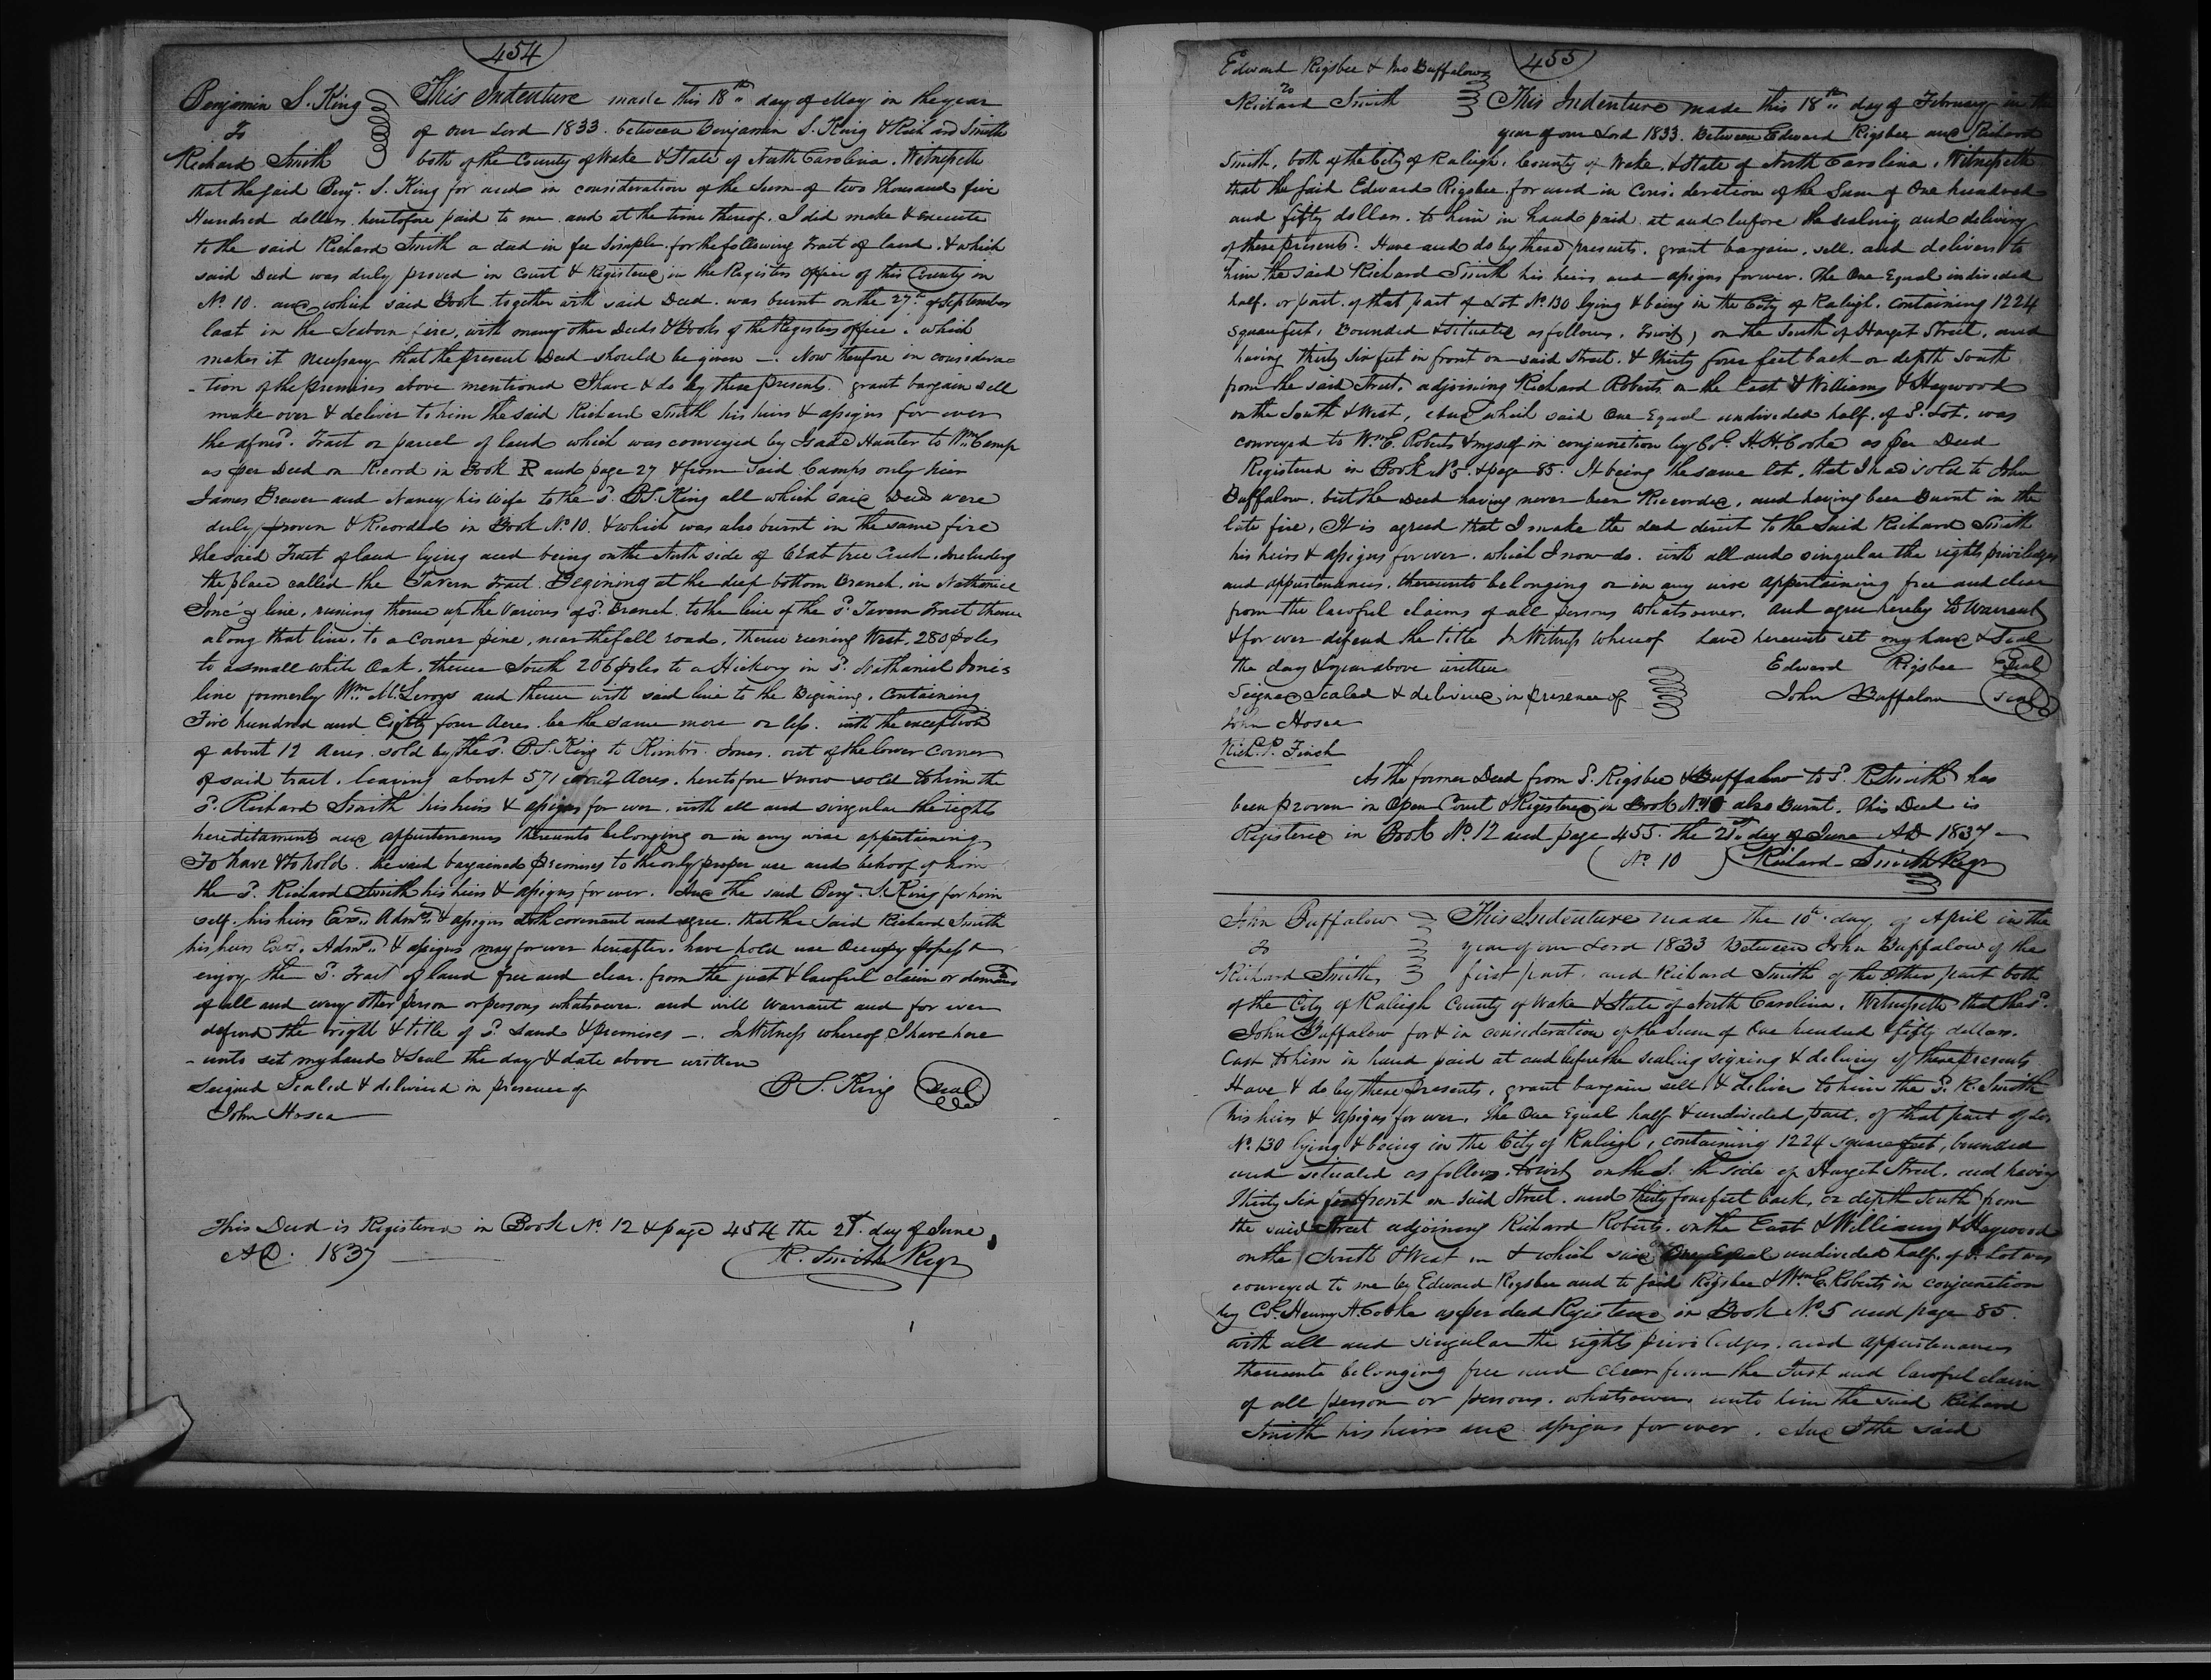 454
Benjamin S. King
To
Richard Smith
This Indenture made this 18th day of May in the year
of our Lord 1833. between Benjamin S. King & Richard Smith
both of the County of Wake & State of North Carolina. Witnesseth
that the said Benj. S. King for and in consideration of the Sum of two thousand five
Hundred dollars heretofore paid to me and at the time thereof. I did make & execute
to the said Richard Smith a deed in fee Simple for the following Tract of land. & which
said Deed was duly proved in Court & Registered in the Registers office of this County in
No 10. and which said Book together with said Deed. was burnt on the 27th of September
last in the Seaborn fire, with many other Deeds & Books of the Registers office. which
makes it necessary that the present Deed should be given —. Now therefore in considera-
-tion of the premises above mentioned I have & do by these presents. grant bargain sell
make over & deliver to him the said Richard Smith his heirs & assigns for ever
the afores.d Tract or parcel of land which was conveyed by Isaac Hunter to Wm Camp
as per Deed on Record in Book R and page 27 & from said Camps only heir
James Brewer and Nancy his Wife to the s.d B.S. King all which said Deeds were
duly proven & Recorded in Book No 10. & which was also burnt in the same fire
the said Tract of land lying and being on the North side of Crab tree Creek. Including
the place called the Tavern Tract. Begining at the deep bottom Branch. in Nathaniel
Jones line, runing thence up the Various of s.d Branch to the line of the s.d Tavern Tract thence
along that line. to a corner pine, near the fall road. thence runing West. 280 poles
to a small white Oak. thence South 206 poles to a Hickory in s.d Nathaniel Jones
line formerly Wm McLeroys and thence with said line to the Begining. Containing
Five hundred and Eighty four Acres be the same more or less. with the exception
of about 12 Acres. sold by the s.d B.S. King to Kimbr. Jones. out of the lower corner
of said tract. leaving about 571 or 2 Acres. heretofore & now sold to him the
s.d Richard Smith his heirs & assigns for ever. with all and singular the rights
hereditaments and appurtenances thereunto belonging or in any wise appertaining
To have & to hold. the said bargained premises to the only proper use and behoof of him
the s.d Richard Smith his heirs & assigns for ever. And the said Benj. S. King for him
self. his heirs Exrs. Admrs. & assigns doth covenant and agree. that the said Richard Smith
his heirs Exrs. Admrs. & assigns may for ever hereafter. have hold use Occupy possess &
enjoy the s.d Tract of land free and clear. from the just & lawful claim or demand
of all and every other person or persons whatsoever. and will warrant and for ever
defend the right & title of s.d Land & premises —. In Witness whereof I have here
-unto set my hand & Seal the day & date above written
Seigned Sealed & delivered in presence of
B.S. King Seal
John Hosea
This Deed is Registered in Book No 12 & page 454 the 21st. day of June
AD. 1837
R. Smith Regr
455
Edward Rigsbee & Jno Buffalow
To
Richard Smith
This Indenture made this 18th day of February in the
year of our Lord 1833. Between Edward Rigsbee and Richard
Smith. both of the City of Raleigh. County of Wake. & State of North Carolina. Witnesseth
that the said Edward Rigsbee for and in consideration of the Sum of One hundred
and fifty dollars. to him in hand paid at and before the sealing and delivery
of these presents. Have and do by these presents. grant bargain. sell. and deliver to
him the said Richard Smith his heirs and assigns forever. The One Equal undivided
half. or part. of that part of Lot No 130 lying & being in the City of Raleigh. containing 1224
square feet, Bounded & situated as follows. Towit, on the South of Harget Street. and
having thirty Six feet in front on said Street. & thirty four feet back or depth South
from the said Street. adjoining Richard Roberts on the East & Williams & Haywood
on the South & West, And which said One Equal undivided half. of s.d Lot. was
conveyed to Wm E. Roberts & myself in conjunction by Col. H.H. Cooke as per Deed
Registered in Book No 5. & page 85. It being the same Lot. that I had sold to John
Buffalow. but the Deed having never been Recorded, and having been Burnt in the
late fire, It is agreed that I make the deed direct to the said Richard Smith
his heirs & assigns for ever. which I now do. with all and singular the rights priviledges
and appurtenances. thereunto belonging or in any wise appertaining free and clear
from the lawful claims of all persons whatsoever. and agree hereby to Warrant
& for ever defend the title In Witness whereof have hereunto set my hand & Seal
the day & year above written
Edward Rigsbee Seal
Seigned Sealed & delivered in presence of
John Buffalow Seal
John Hosea
Richd. P. Finch
As the former Deed from s.d Rigsbee & Buffalow to s.d R Smith has
been proven in Open Court & Registered in Book No 10 also Burnt. This Deed is
Registered in Book No 12 and page 455. the 21st. day of June AD 1837
(No 10) Richard Smith Regr
John Buffalow
To
Richard Smith
This Indenture made the 10th day of April in the
year of our Lord 1833 Between John Buffalow of the
first part. and Richard Smith of the Other part both
of the City of Raleigh County of Wake & State of North Carolina. Witnesseth that the s.d
John Buffalow for & in consideration of the Sum of One hundred & fifty dollars.
Cash to him in hand paid at and before the sealing signing & delivery of these presents
Have & do by these presents, grant bargain sell & deliver to him the s.d R. Smith
his heirs & assigns for ever. the One Equal half & undivided part. of that part of Lot
No. 130 lying & being in the City of Raleigh, containing 1224 square feet, bounded
and situated as follows. towit on the S. th side of Harget Street. and having
Thirty Six feet front on said Street. and thirty four feet back, or depth South from
the said Street adjoining Richard Roberts. on the East & Williams & Haywood
on the South & West & which said One Equal undivided half. of s.d Lot was
conveyed to me by Edward Rigsbee and to said Rigsbee & Wm E. Roberts in conjunction
by Col. Henry H. Cooke as per deed Registered in Book No 5 and page 85.
with all and singular the rights priviledges. and appurtenances
thereunto belonging free and clear from the Just and lawful claim
of all person or persons. whatsoever unto him the said Richard
Smith his heirs and assigns for ever. And I the said